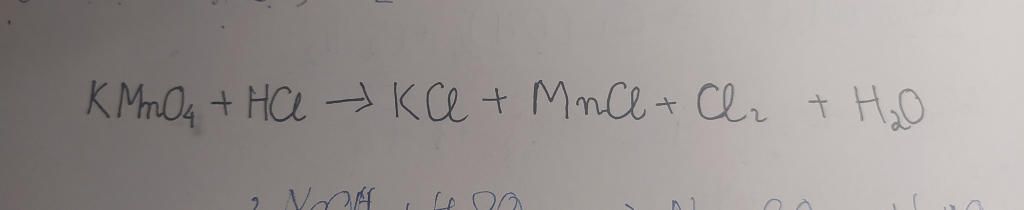 KMnO₄ + HCl → KCl + MnCl + Cl₂ + H₂O